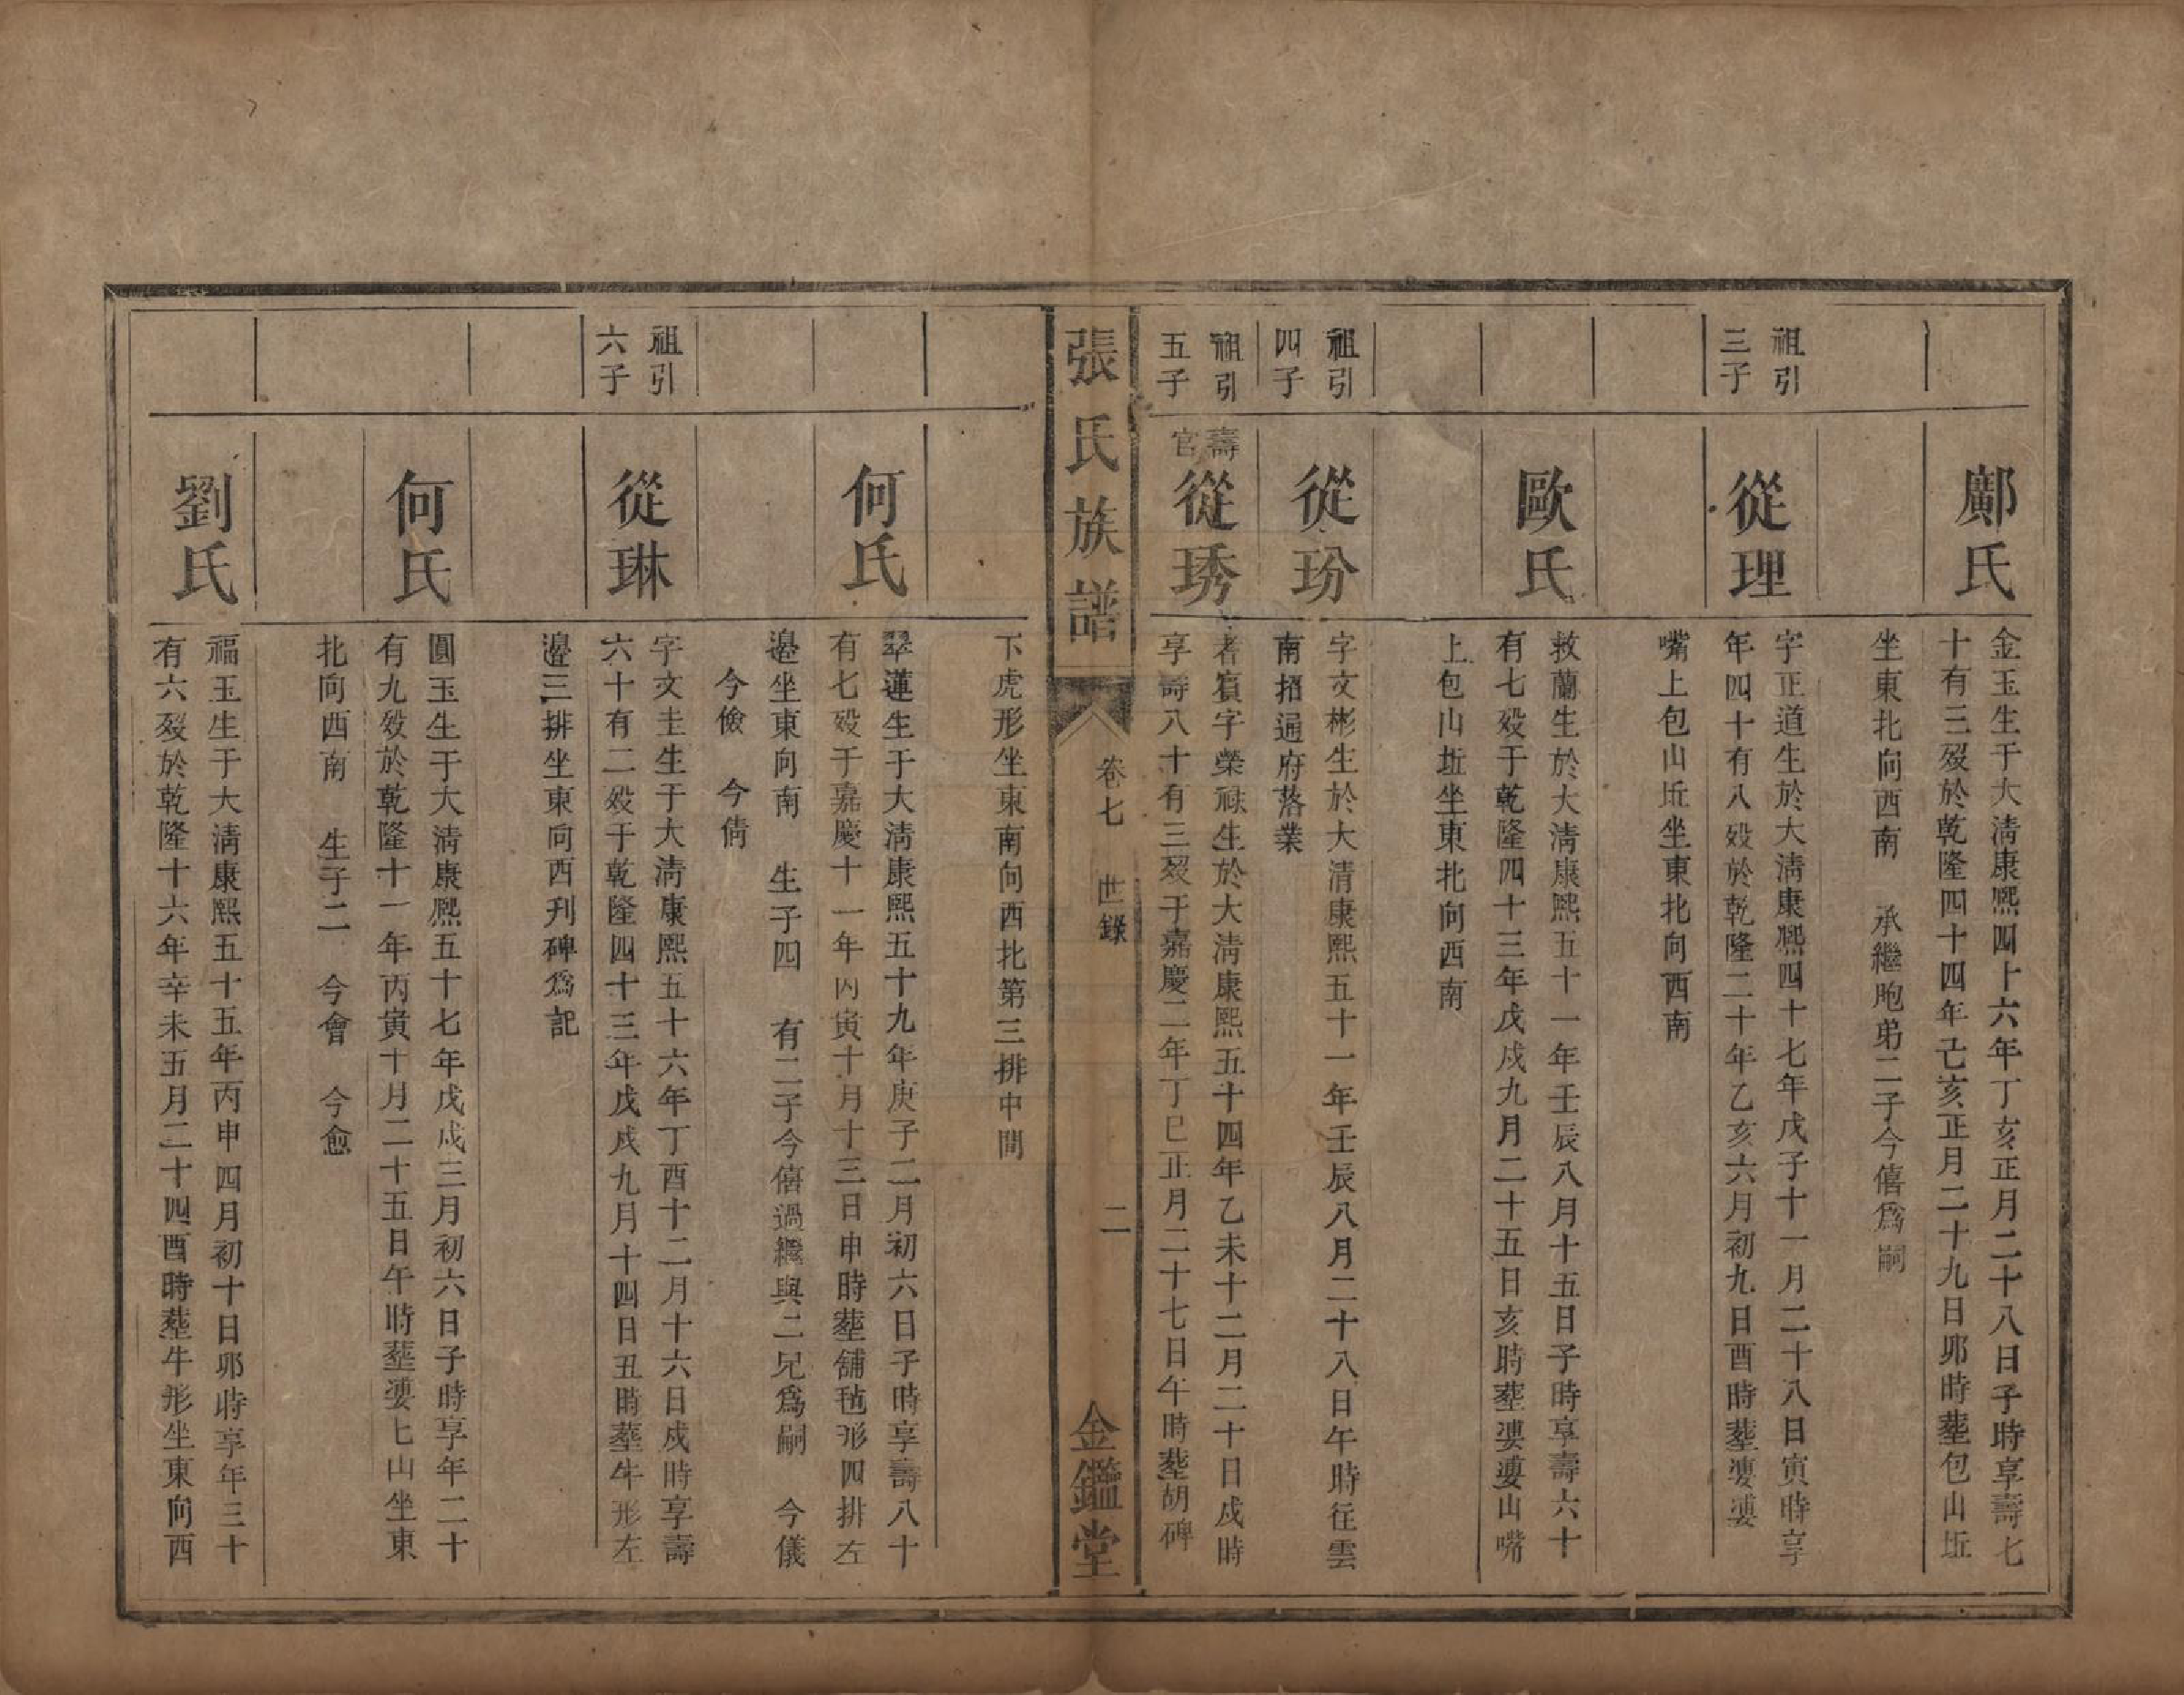 鄺氏
金玉生于大淸康熈四十六年丁亥正月二十八日子時享壽七
十有三歿於乾隆四十四年己亥正月二十九日卯時塟包山坵
坐東北向西南　承繼胞弟二子今僖爲嗣
祖引
三子
從理
字正道生於大淸康熈四十七年戊子十一月二十八日寅時享
年四十有八歿於乾隆二十年乙亥六月初九日酉時塟婆婆
嘴上包山坵坐東北向西南
歐氏
敉蘭生於大淸康熈五十一年壬辰八月十五日子時享壽六十
有七歿于乾隆四十三年戊戍九月二十五日亥時塟婆婆山嘴
上包山坵坐東北向西南
祖引
四子
從玢
字文彬生於大清康熙五十一年壬辰八月二十八日午時往雲
南招通府落業
祖引
五子
壽官
從琇
耆賓字榮祿生於大淸康熙五十四年乙未十二月二十日戍時
享壽八十有三歿于嘉慶二年丁巳正月二十七日午時塟胡碑
張氏族譜
卷七　世錄
二
金鑑堂
下虎形坐東南向西北第三排中間
何氏
翠蓮生于大淸康熙五十九年庚子二月初六日子時享壽八十
有七歿于嘉慶十一年丙寅十月十三日申時塟舖毡形四排左
邉坐東向南　生子四　有二子今僖過繼與二兄爲嗣　今儀
今儉　今倩
祖引
六子
從琳
字文圭生于大淸康熙五十六年丁酉十二月十六日戍時享壽
六十有二歿于乾隆四十三年戊戍九月十四日丑時塟牛形左
邉三排坐東向西刋碑爲記
何氏
圓玉生于大淸康熈五十七年戊戍三月初六日子時享年二十
有九歿於乾隆十一年丙寅十月二十五日午時塟婆七山坐東
北向西南　生子二　今會　今愈
劉氏
福玉生于大淸康熙五十五年丙申四月初十日卯時享年三十
有六歿於乾隆十六年辛未五月二十四酉時塟牛形坐東向西